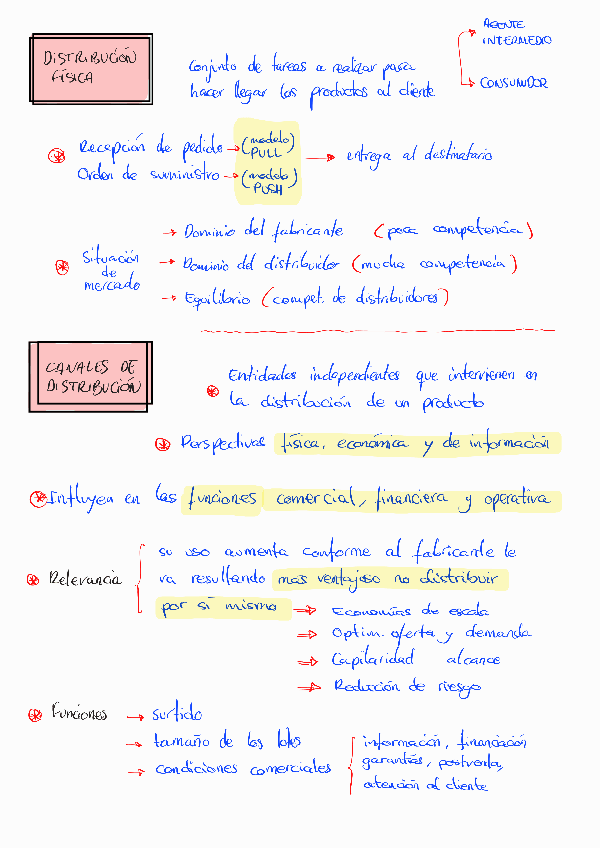 DISTRIBUCIÓN
FÍSICA
Conjunto de tareas a realizar para
hacer llegar los productos al cliente
AGENTE
INTERMEDIO
CONSUMIDOR
Recepción de pedido → (modelo)
PULL
Orden de suministro → (modelo)
PUSH
→ entrega al destinatario
Situación
de
mercado
→ Dominio del fabricante (poca competencia)
→ Dominio del distribuidor (mucha competencia)
→ Equilibrio (compet. de distribuidores)
CANALES DE
DISTRIBUCIÓN
Entidades independientes que intervienen en
la distribución de un producto
Perspectivas física, económica y de información
Influyen en las funciones comercial, financiera y operativa
Relevancia
su uso aumenta conforme al fabricante le
va resultando más ventajoso no distribuir
por sí mismo
⇒ Economías de escala
⇒ Optim. oferta y demanda
⇒ Capilaridad alcance
⇒ Reducción de riesgo
Funciones → surtido
→ tamaño de los lotes
→ condiciones comerciales
información, financiación
garantías, postventa,
atención al cliente